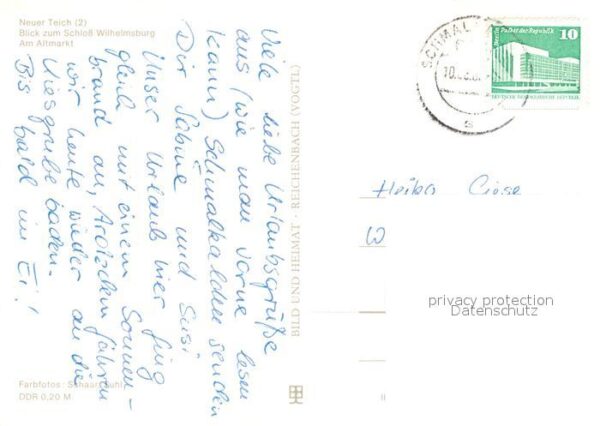 Neuer Teich (2)
Blick zum Schloß Wilhelmsburg
Am Altmarkt
Viele liebe Urlaubsgrüße
aus (wie man vorne lesen
kann) Schmalkalden senden
Dir Sabine und Susi
Unser Urlaub hier fing
gleich mit einem Sonnen-
brand an, trotzdem fahren
wir heute wieder an die
Kiesgrube baden.
Bis bald in Ei!
Farbfotos: Schaar, Suhl
DDR 0,20 M
BILD UND HEIMAT · REICHENBACH (VOGTL)
SCHMAL
10
Palast der Republik
DEUTSCHE DEMOKRATISCHE REPUBLIK
Heiko
W
privacy protection
Datenschutz